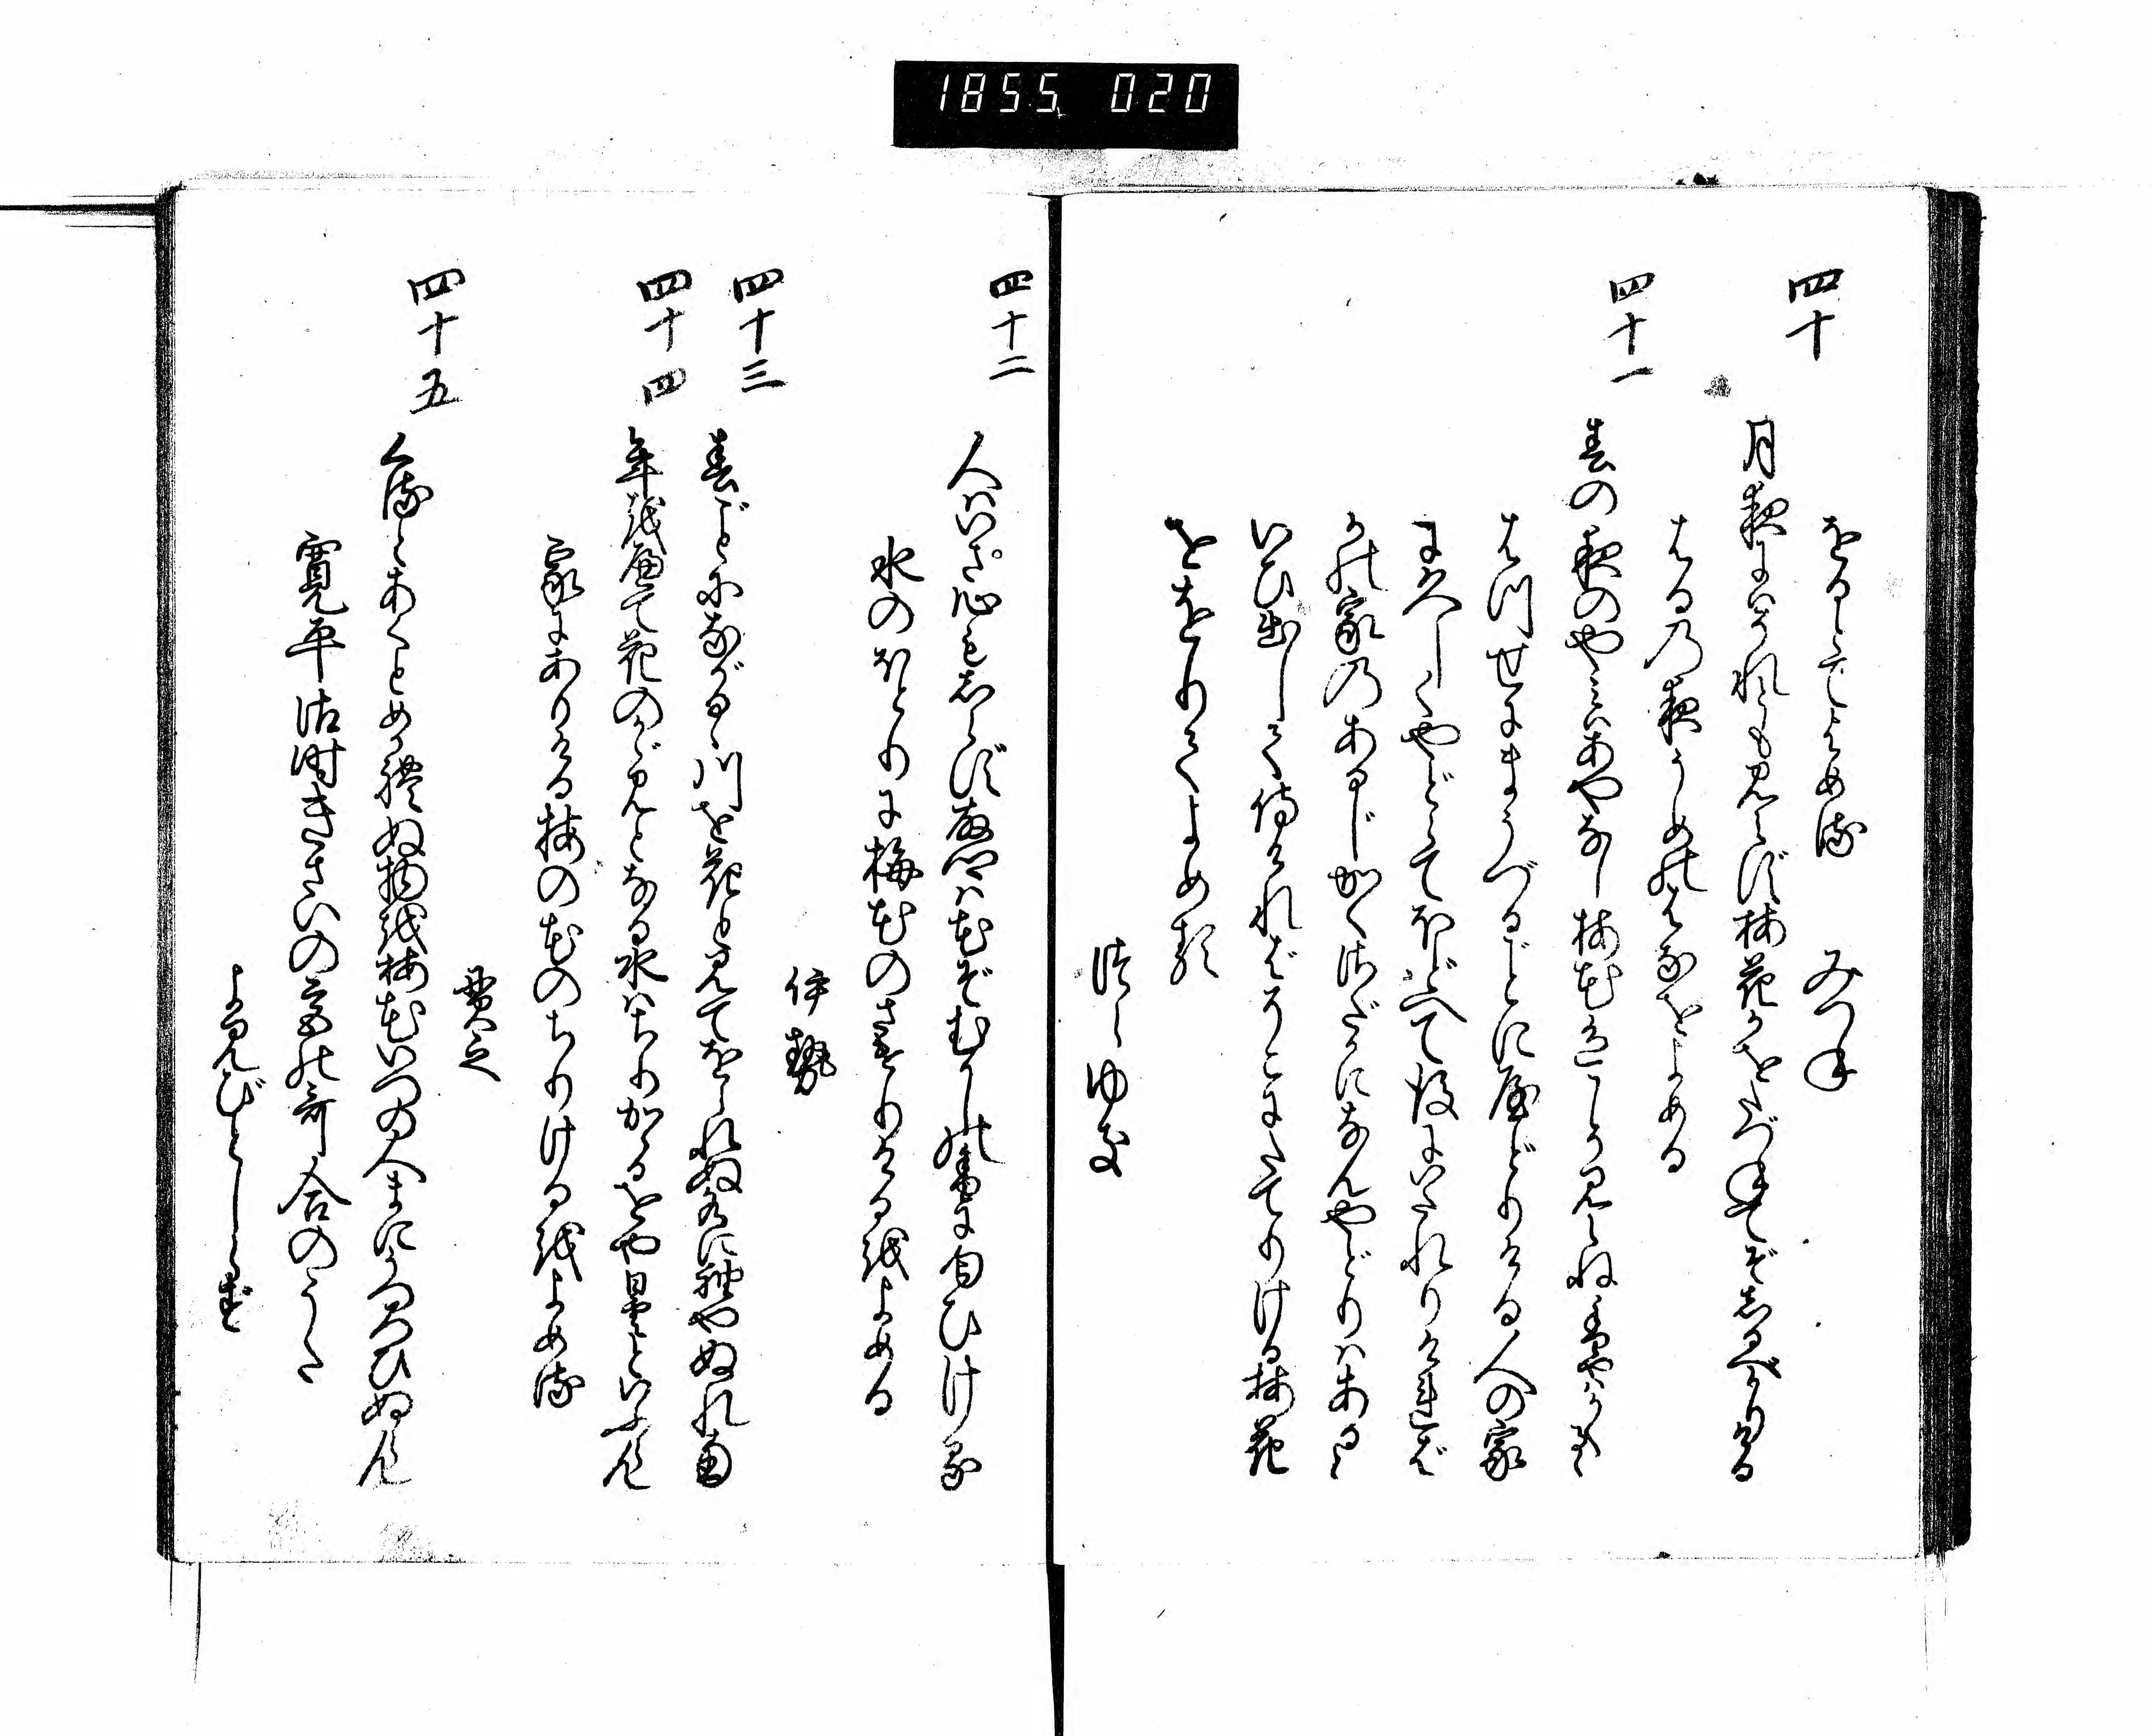 1855 020
をるとてよめる　みつね
四十
月夜にはそれとも見えず梅花かをたづねてぞしるべかりける
はるの夜うめのはなをよめる
四十一
春の夜のやみはあやなし梅花色こそ見えね香やはかくるゝ
はつせにまうづるごとに屋どりける人の家
にひさしくやどらでほどへて後にいたれりければ
かの家のあるじかくさだかになんやどりはあると
いひ出して侍ければそこにたてりける梅花
ををりてよめる
つらゆき
四十二
人はいさ心もしらず故郷は花ぞむかしの香に匂ひける
水のほとりに梅花のさけりけるをよめる
伊勢
四十三
春ごとにながるゝ川を花と見てをられぬ水に袖やぬれなむ
四十四
年をへて花のかゞみとなる水はちりかゝるをや曇といふらん
家にありける梅の花のちりけるをよめる
貫之
四十五
くるとあくとめかれぬ物を梅花いつの人まにうつろひぬらん
寛平御時きさいの宮の哥合のうた
よみ人しらず